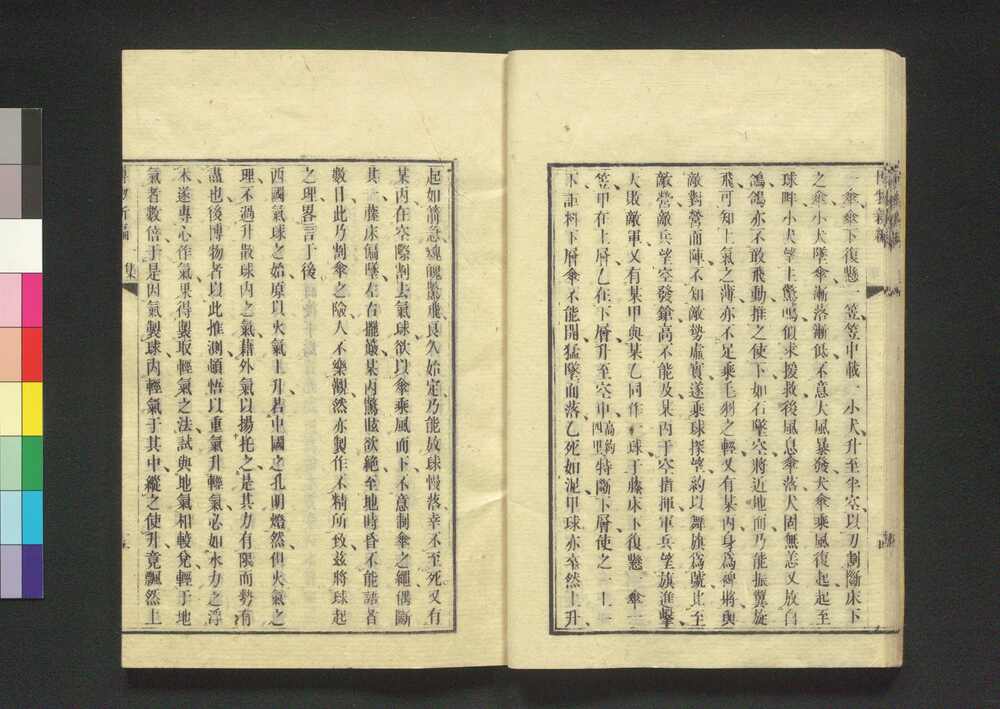 一傘傘下復懸一笠笠中載一小犬升至半空以刀割斷床下
之傘小犬墜傘漸落漸低不意大風暴發犬傘乘風復起起至
球畔小犬望主驚鳴似求援救後風息傘落犬固無恙又放白
鴿鴿亦不敢飛動推之使下如石墜空將近地而乃能振翼旋
飛可知上氣之薄亦不足乘毛羽之輕又有某丙身爲裨將與
敵對營而陣不知敵勢虛實遂乘球探望約以舞旗爲號比至
敵營敵兵望空發鎗高不能及某丙于空指揮軍兵望旗進擊
大敗敵軍又有某甲與某乙同作一球于藤床下復懸一傘一
笠甲在上層乙在下層升至空中高約四里特斷下層使之一上一
下詎料下層傘不能開猛墜而落乙死如泥甲球亦卒然上升
起如箭急魂魄驚飛良久始定乃能放球慢落幸不至死又有
某丙在空際割去氣球欲以傘乘風而下不意制傘之繩偶斷
其一藤床偏墜左右擺簸某丙驚眩欲絕至地時昏不能語者
數日此乃割傘之險人不樂觀然亦製作不精所致兹將球起
之理畧言于後
西國氣球之始原以火氣上升若中國之孔明燈然但火氣之
理不過升散球內之氣藉外氣以揚托之是其力有限而勢有
盡也後博物者以此推測頓悟以重氣升輕氣必如水力之浮
木遂專心作氣果得製取輕氣之法試與地氣相較兌輕于地
氣者數倍于是因氣製球內輕氣于其中縱之使升竟飄然上
博物新編 一集